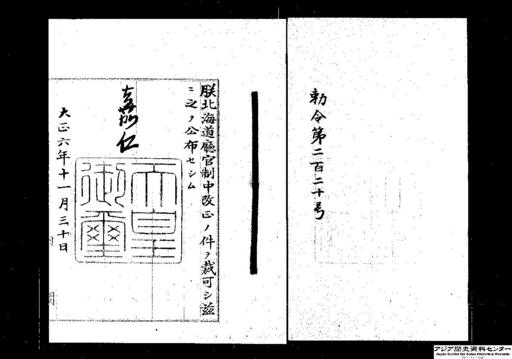 勅令第二百二十号
朕北海道廳官制中改正ノ件ヲ裁可シ茲
ニ之ヲ公布セシム
嘉仁
天皇
御璽
大正六年十一月三十日
アジア歴史資料センター
Japan Center for Asian Historical Records